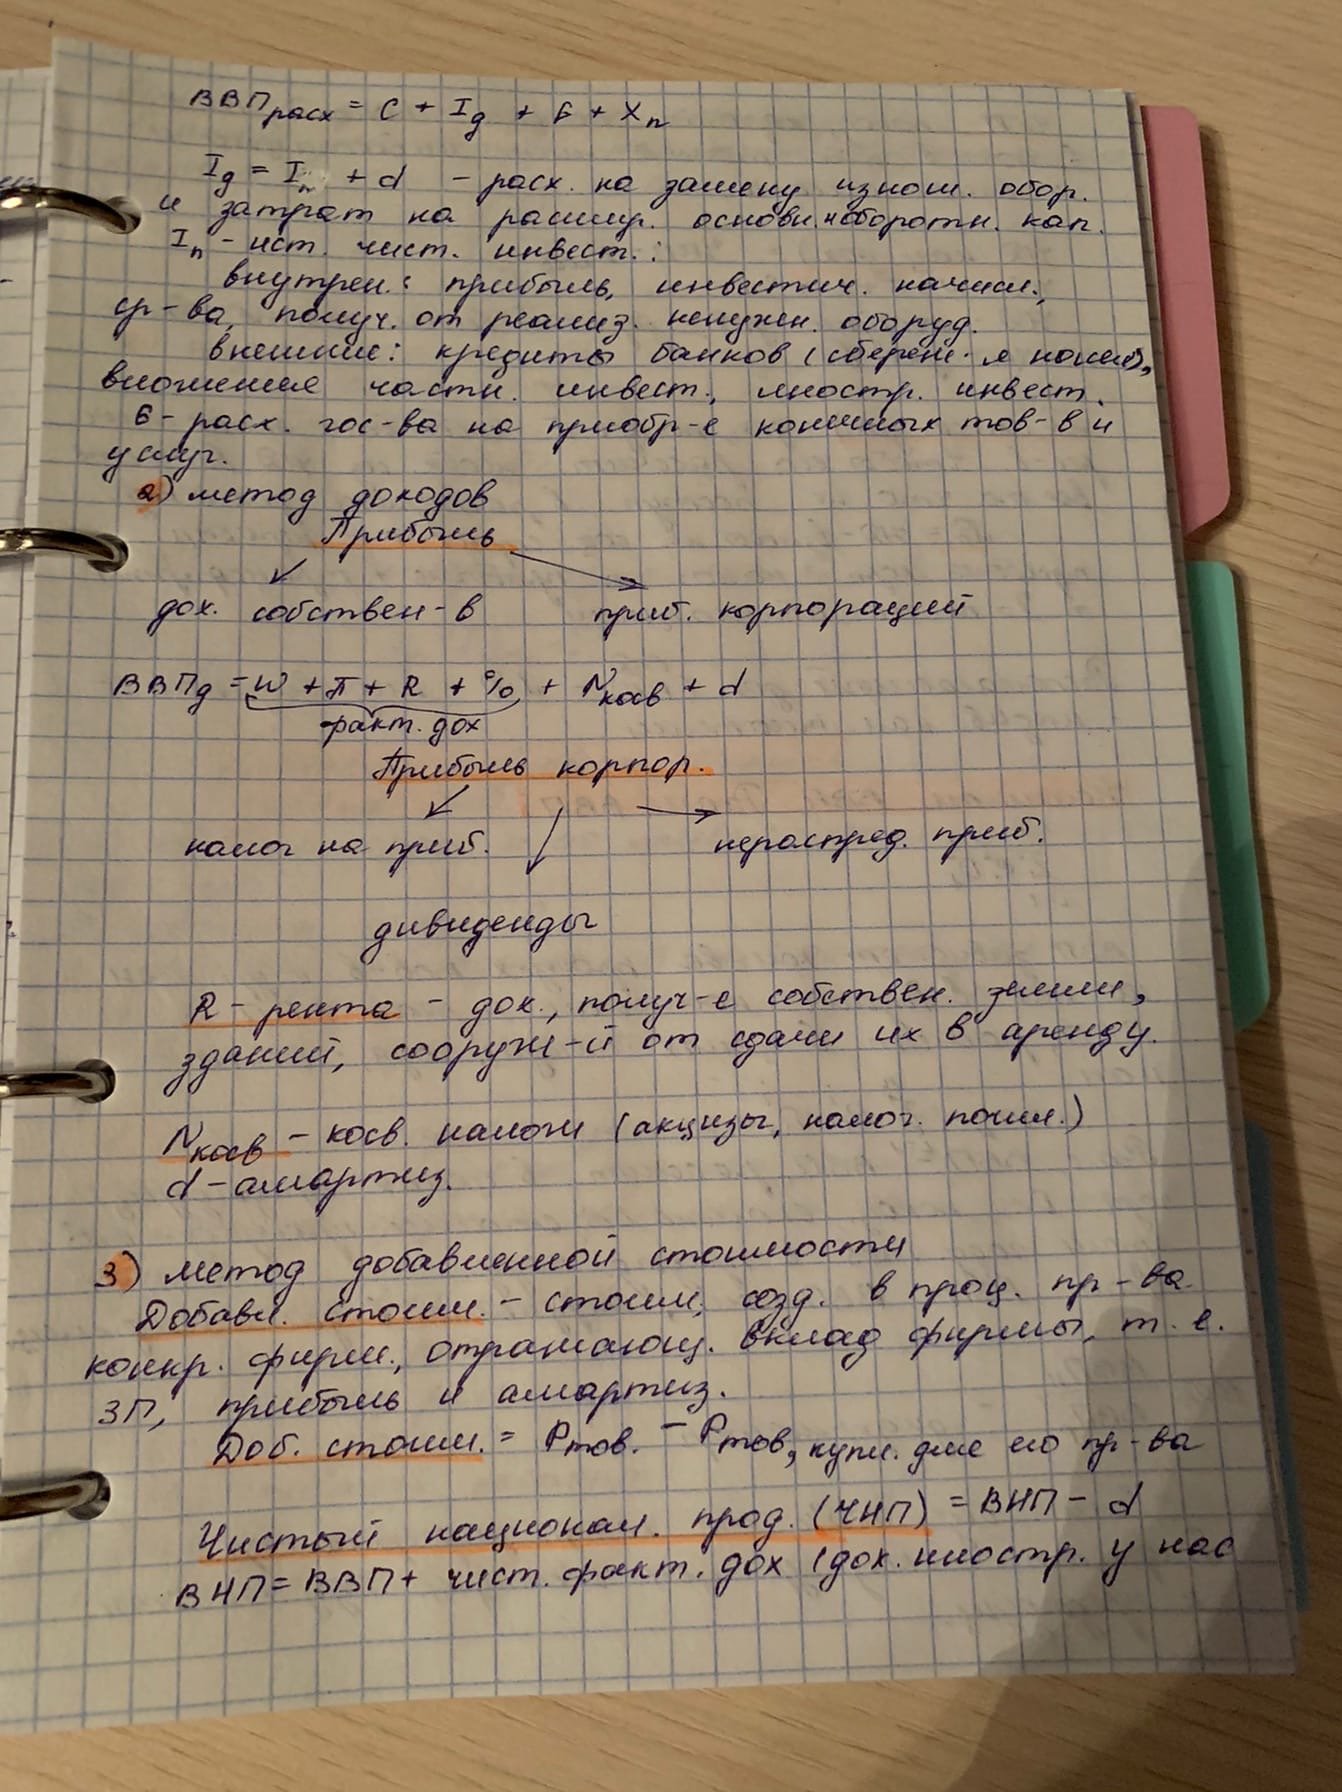 ВВПрасх = C + Ig + G + Xn
Ig = In + d - расх. на замену изнош. обор.
и затрат на расшир. основн. и оборотн. кап.
In - ист. чист. инвест.:
внутрен.: прибыль, инвестич. начисл.,
ср-ва, получ. от реализ. ненужн. оборуд.
внешние: кредиты банков (сбереж.
вложения частн. инвест., иностр. инвест.
G - расх. гос-ва на приобр-е конечных тов-в и
услуг.
2) метод доходов
Прибыль
дох. собствен-в приб. корпораций
ВВПд = W + π + R + % + Nкосв + d
факт. дох
Прибыль корпор.
налог на приб. нераспред. приб.
дивиденды
R - рента - дох., получ-е собствен. земли,
зданий, сооруж-й от сдачи их в аренду.
Nкосв - косв. налоги (акцизы, налог. пошл.)
d - амортиз.
3) метод добавленной стоимости
Добавл. стоим. - стоим, созд. в проц. пр-ва
конкр. фирм., отражающ. вклад фирмы, т. е.
ЗП, прибыль и амортиз.
Доб. стоим. = Pтов. - Pтов, купл. для его пр-ва
Чистый национал. прод. (ЧНП) = ВНП - d
ВНП = ВВП + чист. факт. дох (дох. иностр. у нас